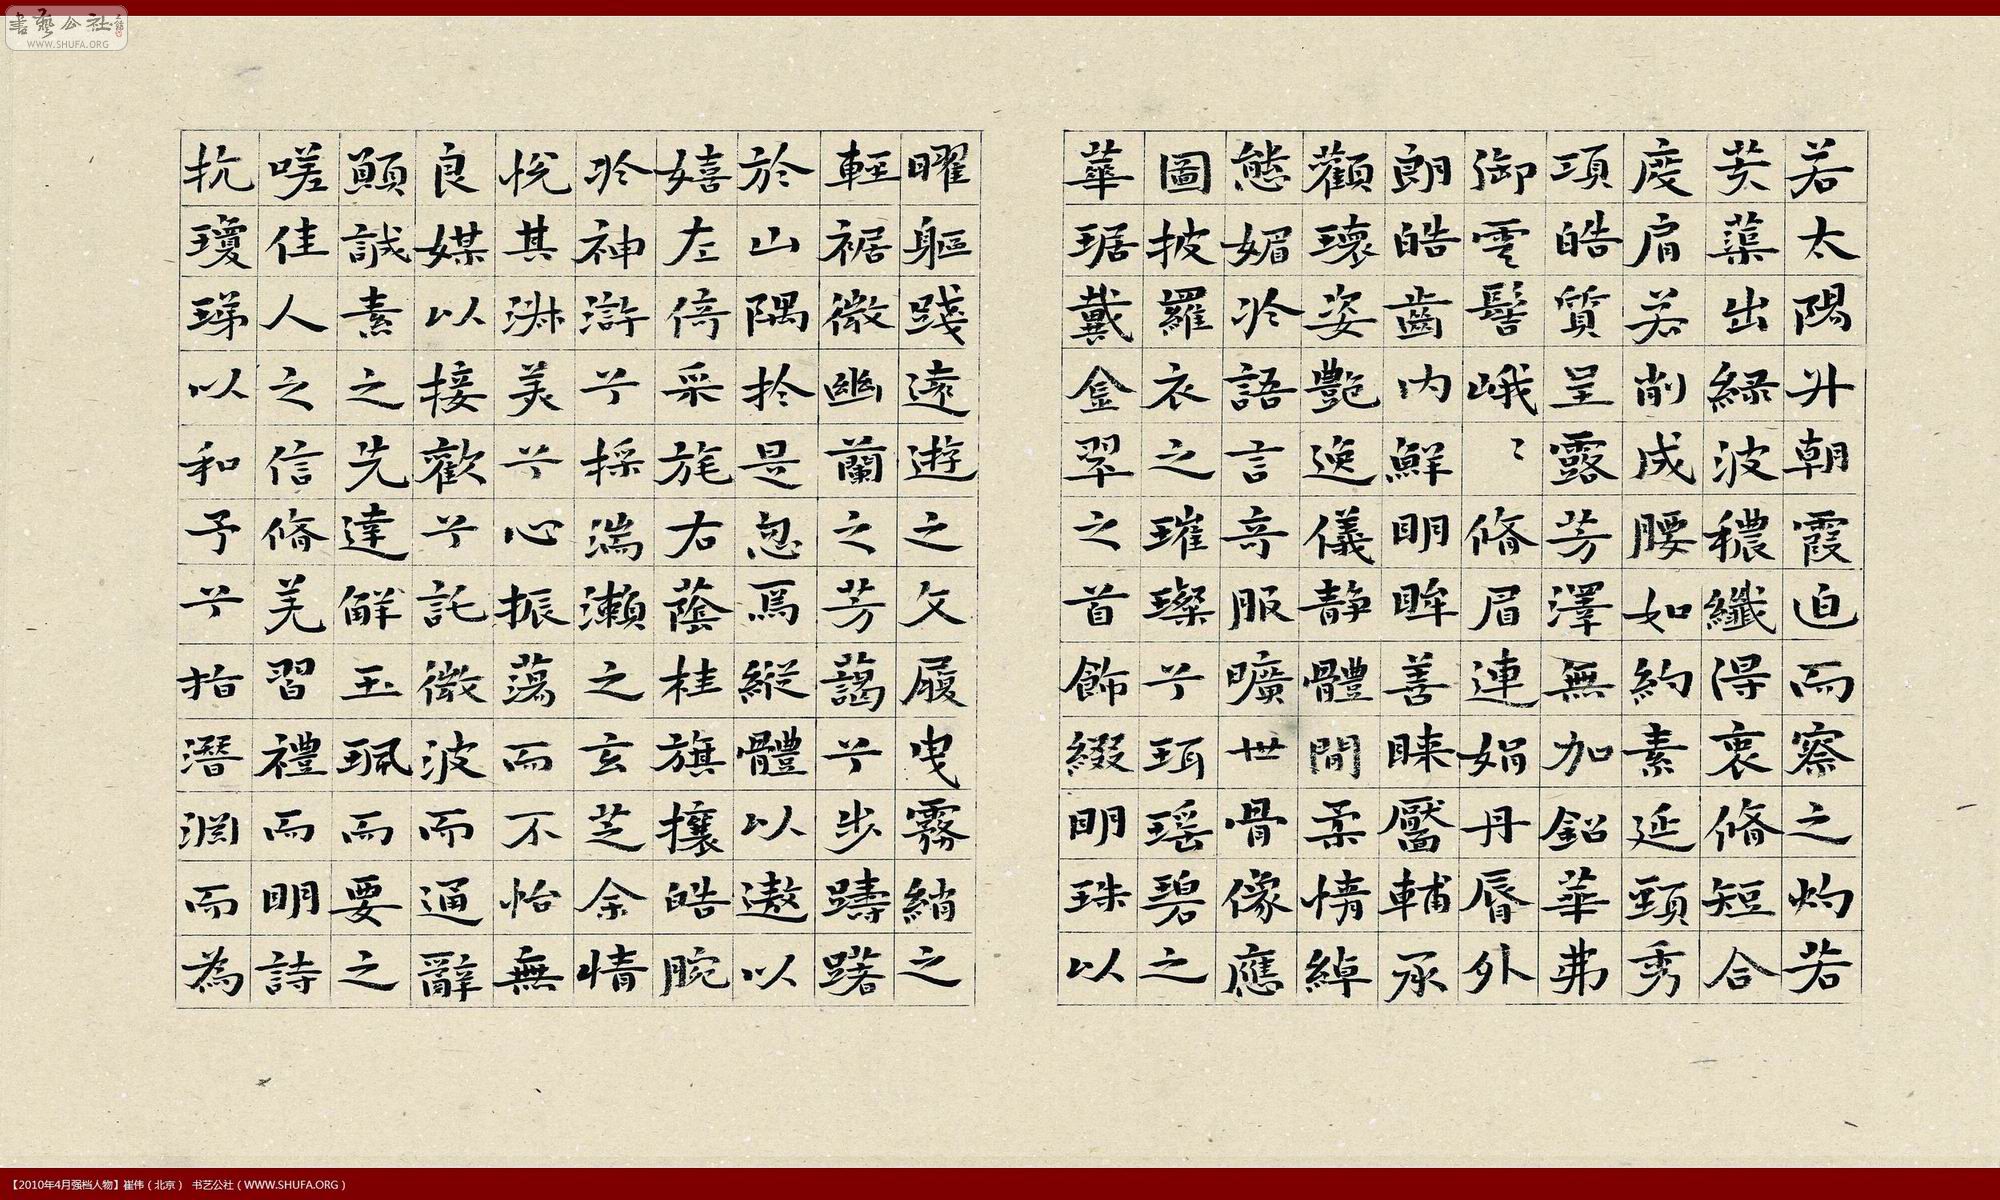 書藝公社
WWW.SHUFA.ORG
若太陽升朝霞迫而察之灼若
芙蕖出緑波穠纖得衷脩短合
度肩若削成腰如約素延頸秀
項皓質呈露芳澤無加鉛華弗
御雲髻峨〻脩眉連娟丹脣外
朗皓齒内鮮明眸善睞靨輔承
顴瓌姿艷逸儀静體閒柔情綽
態媚於語言奇服曠世骨像應
圖披羅衣之璀璨兮珥瑶碧之
華琚戴金翠之首飾綴明珠以
曜軀踐遠遊之文履曳霧綃之
輕裾微幽蘭之芳藹兮步躊躇
於山隅於是忽焉縱體以遨以
嬉左倚采旄右蔭桂旗攘皓腕
於神滸兮採湍瀨之玄芝余情
悅其淋美兮心振蕩而不怡無
良媒以接歡兮託微波而通辭
顚誠素之先達解玉珮而要之
嗟佳人之信脩羌習禮而明詩
抗瓊珶以和予兮指潛淵而為
【2010年4月强档人物】崔伟（北京） 书艺公社（WWW.SHUFA.ORG）